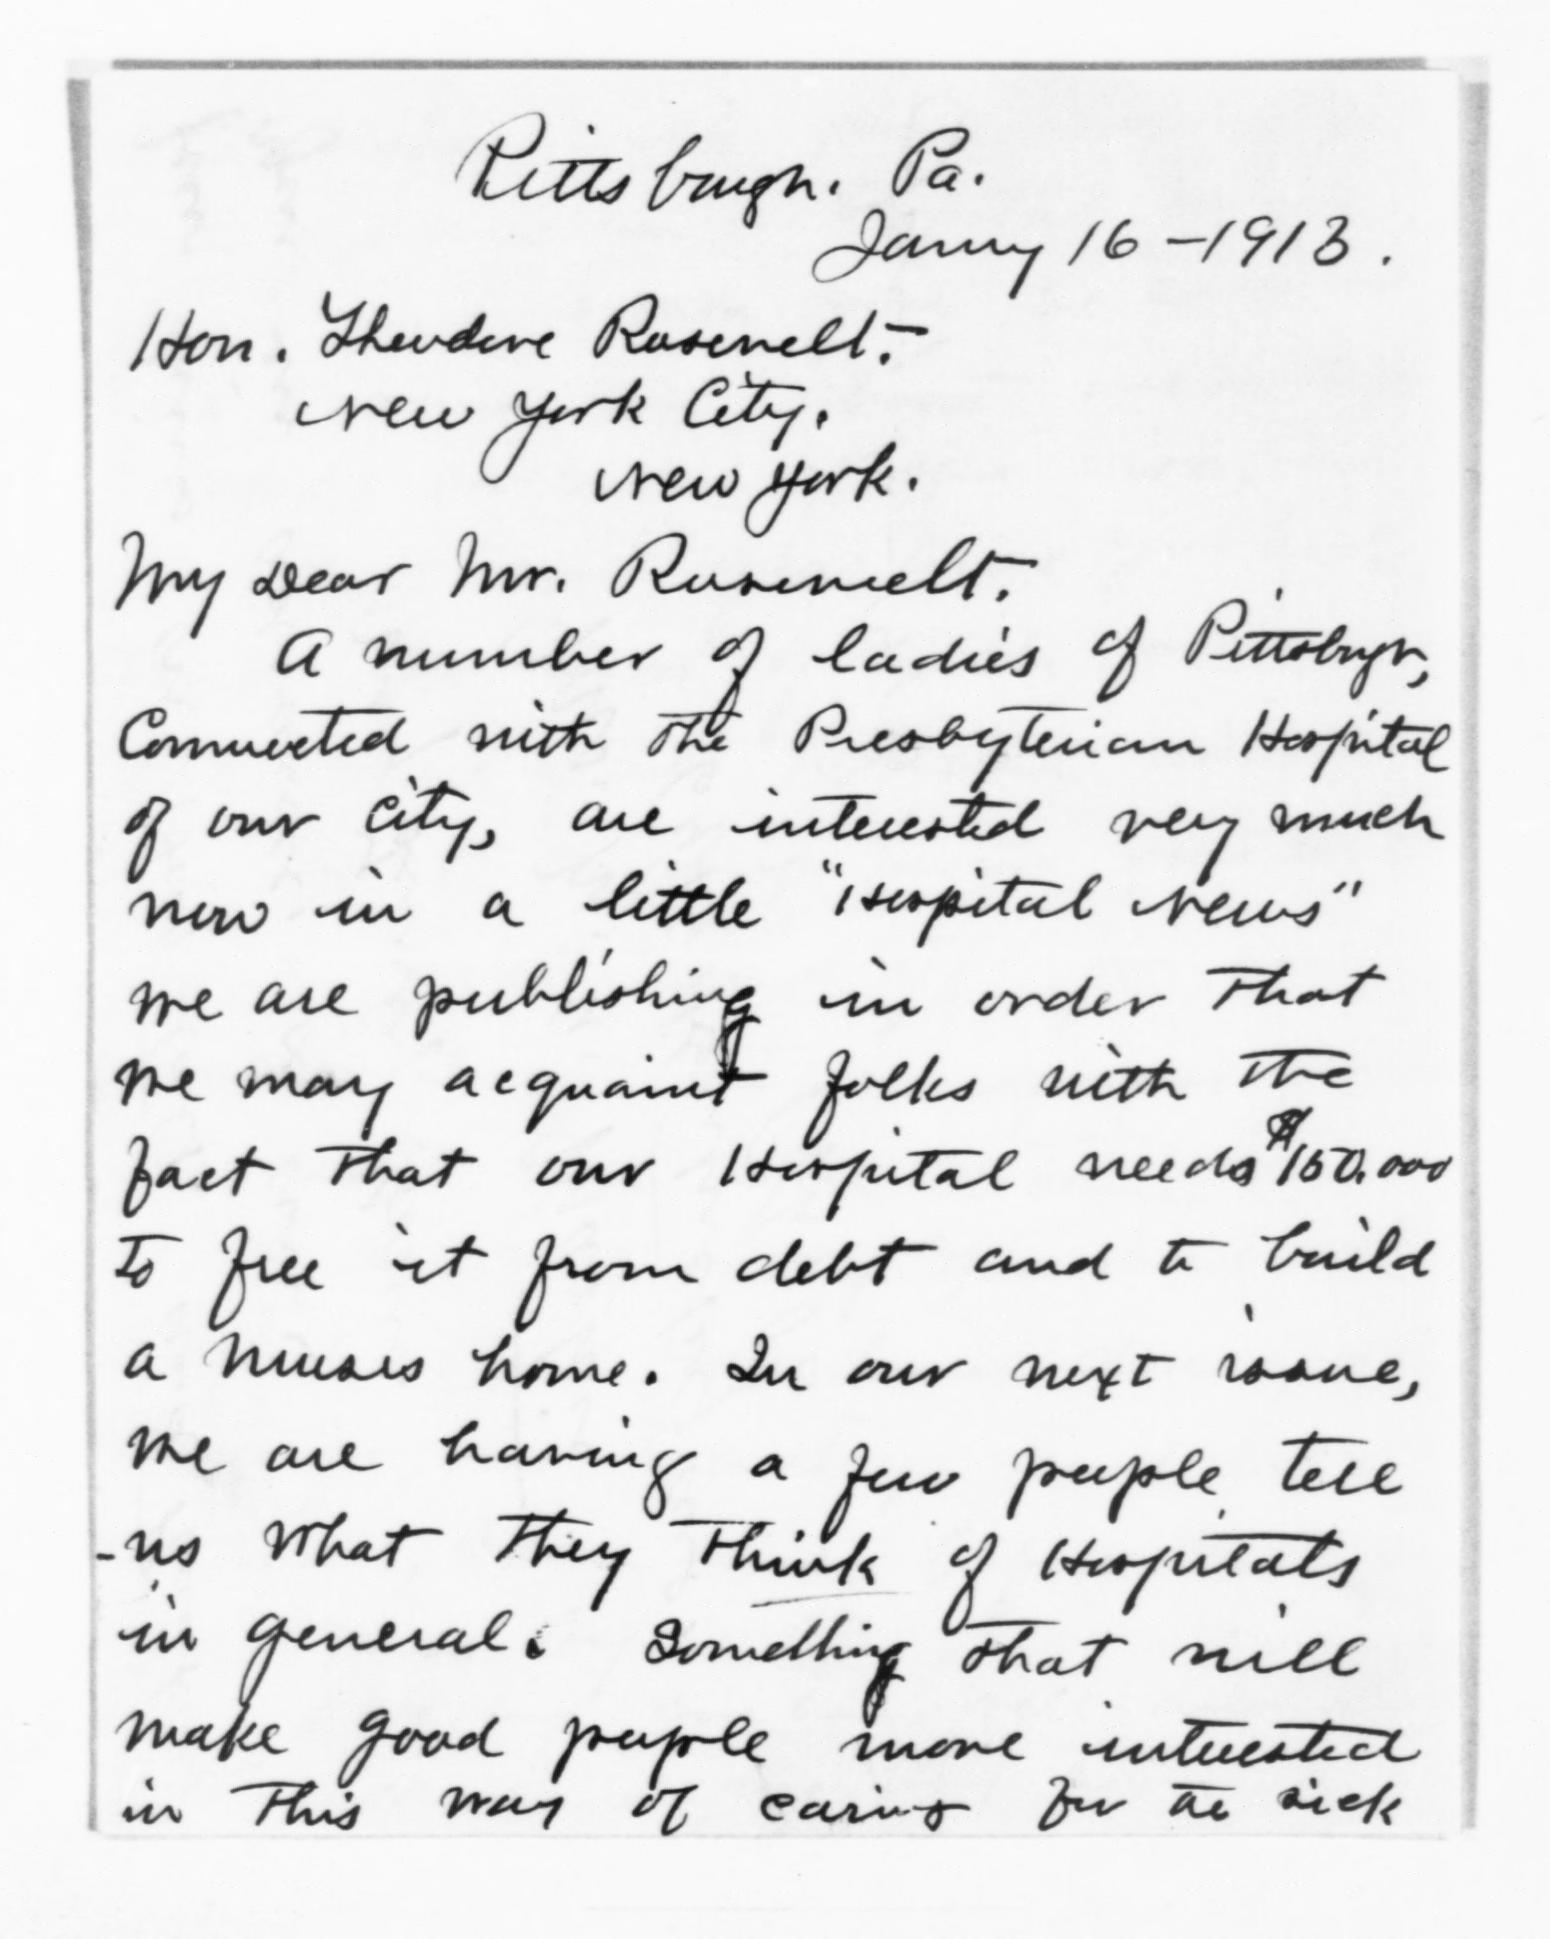 Pittsburgh. Pa.
Janry 16-1913.
Hon. Theodore Roosevelt.
New York City.
New York.
My Dear Mr. Roosevelt.
A number of ladies of Pittsburgh,
Connected with the Presbyterian Hospital
of our City, are interested very much
now in a little "Hospital News"
we are publishing in order that
we may acquaint folks with the
fact that our Hospital needs $150.000
to free it from debt and to build
a Nurses home. In our next issue,
we are having a few people tell
us what they think of Hospitals
in general. Something that will
make good people more interested
in this way of caring for the sick